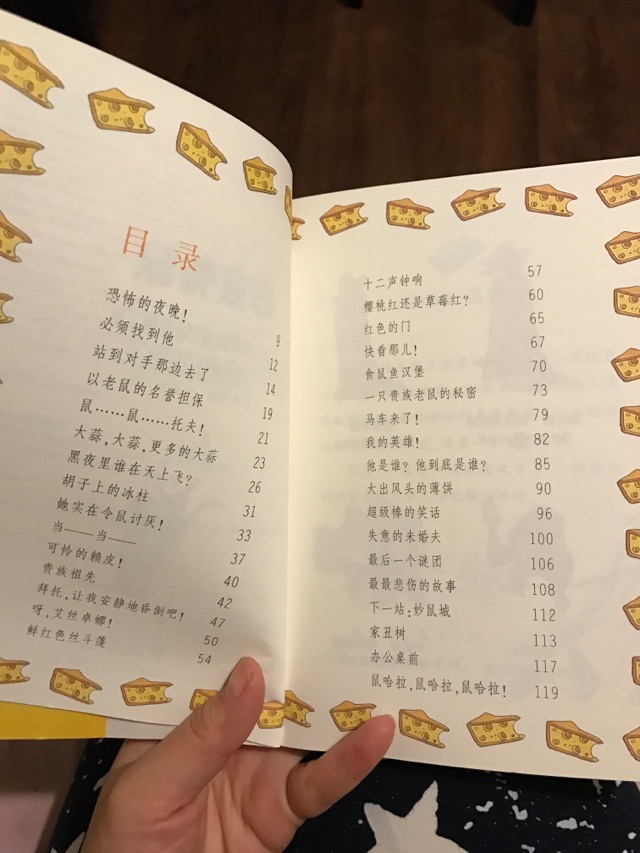 目录
恐怖的夜晚! 9
必须找到他 12
站到对手那边去了 14
以老鼠的名誉担保 19
鼠……鼠……托夫! 21
大蒜,大蒜,更多的大蒜 23
黑夜里谁在天上飞? 26
胡子上的冰柱 31
她实在令鼠讨厌! 33
当——当—— 37
可怜的赖皮! 40
贵族祖先 42
拜托,让我安静地昏倒吧! 47
呀,艾丝卓娜! 50
鲜红色丝斗篷 54
十二声钟响 57
樱桃红还是草莓红? 60
红色的门 65
快看那儿! 67
食鼠鱼汉堡 70
一只贵族老鼠的秘密 73
马车来了! 79
我的英雄! 82
他是谁?他到底是谁? 85
大出风头的薄饼 90
超级棒的笑话 96
失意的未婚夫 100
最后一个谜团 106
最最悲伤的故事 108
下一站:妙鼠城 112
家丑树 113
办公桌前 117
鼠哈拉,鼠哈拉,鼠哈拉! 119